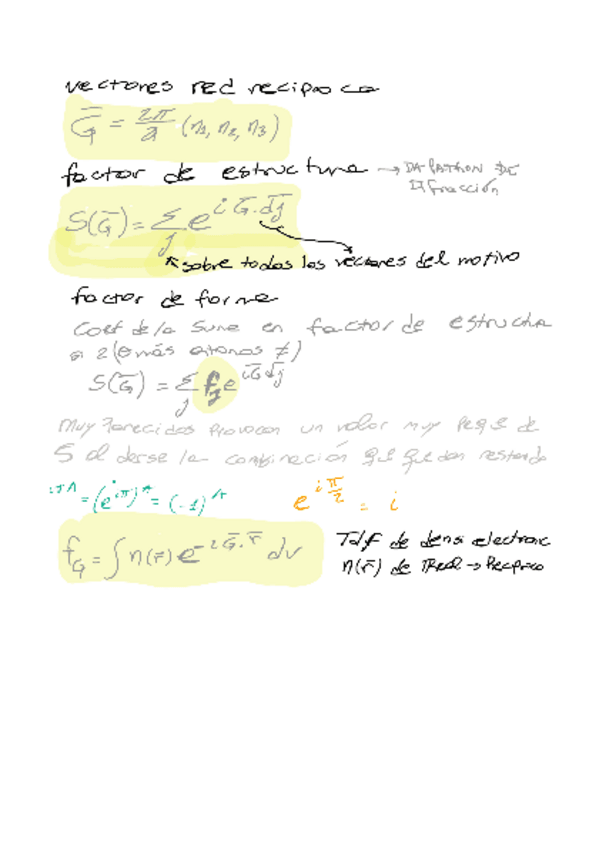 vectores red reciproca
G̅ = 2π/a (n1, n2, n3)
factor de estructura → DA PATRON DE
DIfracción
S(G̅) = Σ_j e^{i G̅·d̅j}
↖ sobre todos los vectores del motivo
factor de forma
Coef de la suma en factor de estructura
si 2 (o más atomos ≠)
S(G̅) = Σ_j f_j e^{iG̅·d̅j}
Muy Parecidos Provocan un valor muy Peque de
S al darse la combinación que quedan restando
= (e^{iπ})^n = (-1)^n
e^{iπ/2} = i
f_G = ∫ n(r̅) e^{-iG̅·r̅} dv
Tdf de dens electronic
n(r̅) de Real → Reciproco